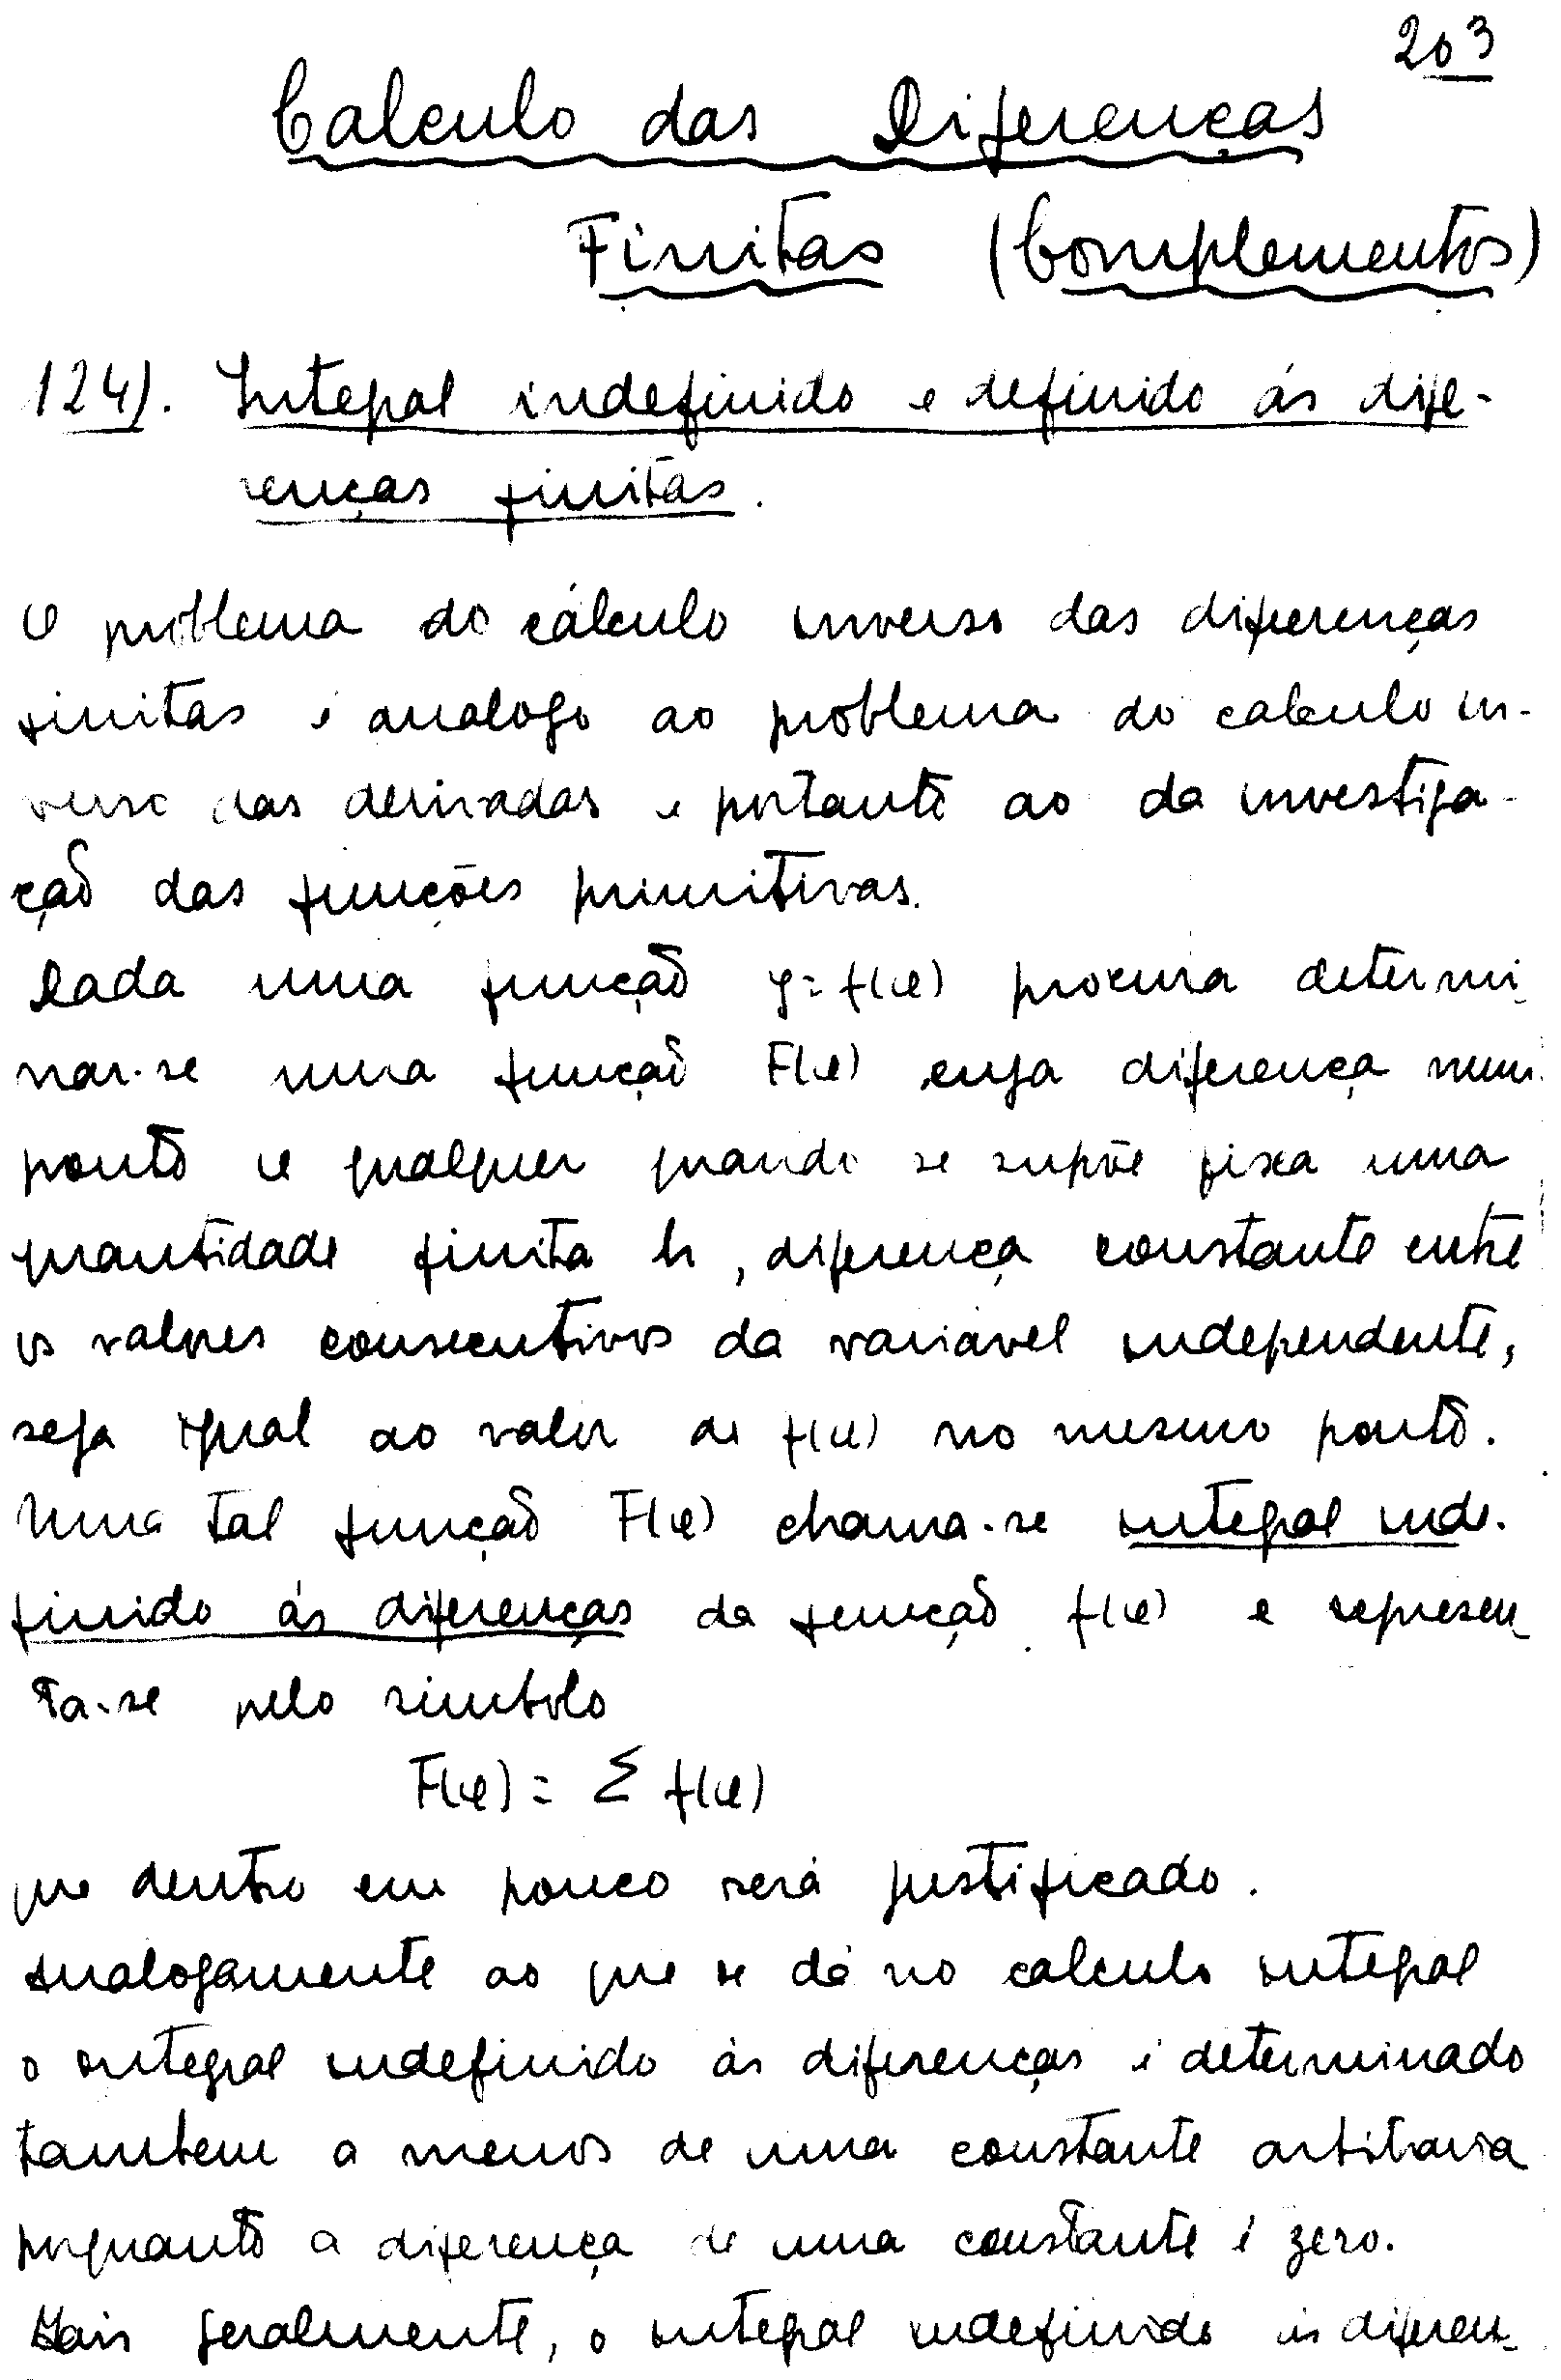 203
Calculo das Diferenças
Finitas (Complementos)
124). Integral indefinido e definido ás dife-
renças finitas.
O problema do cálculo inverso das diferenças
finitas é analogo ao problema do calculo in-
verso das derivadas e portanto ao da investiga-
ção das funções primitivas.
Dada uma função y=f(x) procura determi-
nar-se uma função F(x) cuja diferença num
ponto x qualquer quando se supõe fixa uma
quantidade finita h, diferença constante entre
os valores consecutivos da variavel independente,
seja igual ao valor de f(x) no mesmo ponto.
Uma tal função F(x) chama-se integral inde-
finido ás diferenças da função f(x) e represen-
ta-se pelo simbolo
F(x) = Σ f(x)
que dentro em pouco será justificado.
Analogamente ao que se dá no calculo integral
o integral indefinido ás diferenças é determinado
tambem a menos de uma constante arbitraria
porquanto a diferença de uma constante é zero.
Mais geralmente, o integral indefinido ás diferen-